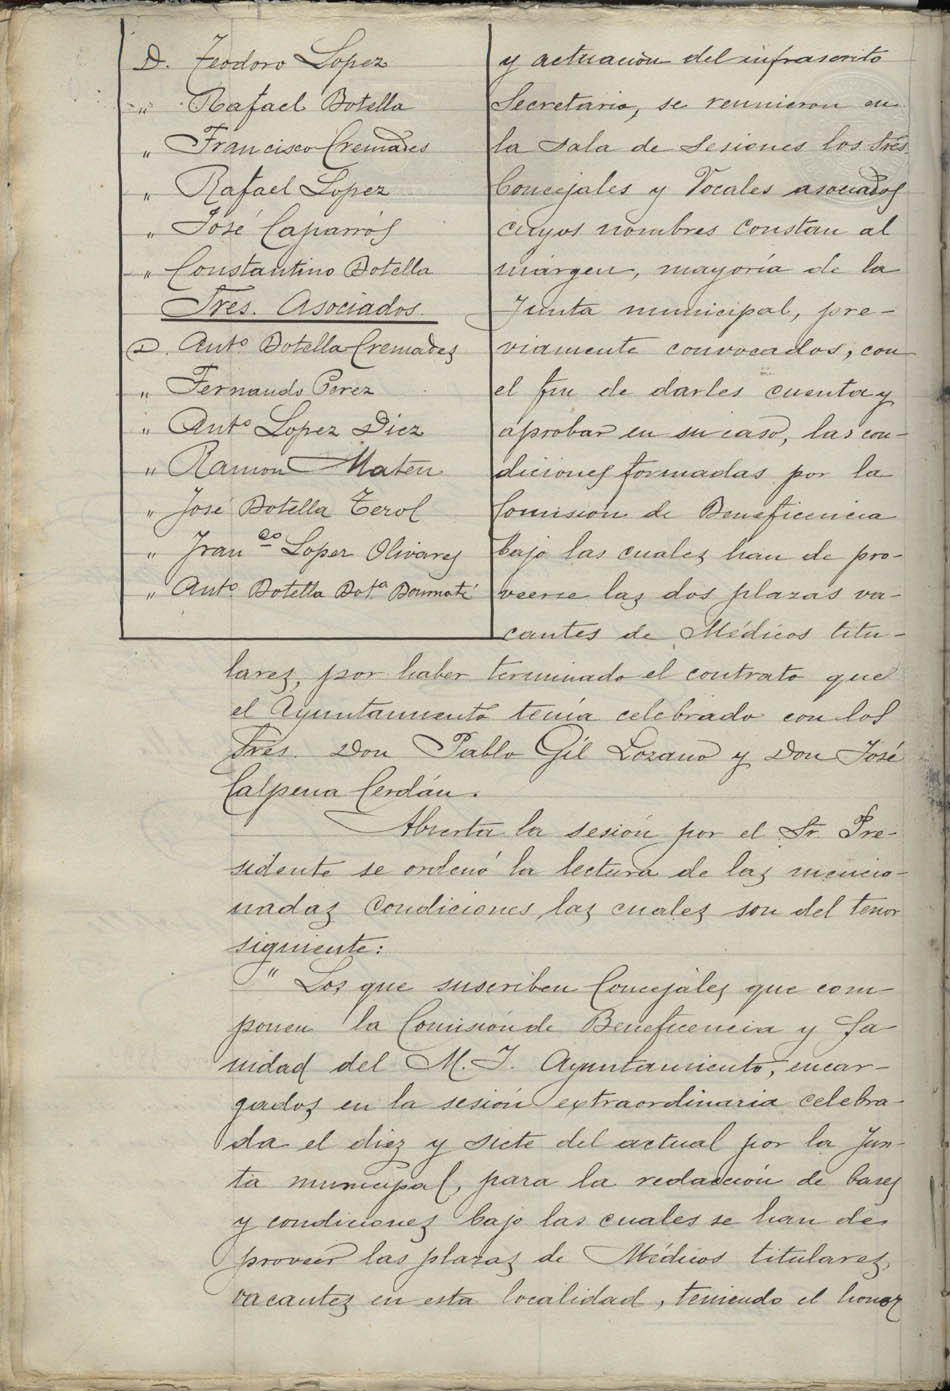 D. Teodoro Lopez
" Rafael Botella
" Francisco Cremades
" Rafael Lopez
" José Caparrós
" Constantino Botella
Sres. Asociados
D. Ant.º Botella Cremades
" Fernando Perez
" Ant.º Lopez Diez
" Ramon Mateu
" José Botella Terol
" Fran.co Lopez Olivares
" Ant.º Botella Bot.ª
y actuación del infrascrito
Secretario, se reunieron en
la sala de sesiones los Sres.
Concejales y Vocales asociados
cuyos nombres constan al
márgen, mayoría de la
Junta municipal, pre-
viamente convocados, con
el fin de darles cuenta y
aprobar en su caso, las con-
diciones formadas por la
Comision de Beneficencia
bajo las cuales han de pro-
veerse las dos plazas va-
cantes de Médicos titu-
lares, por haber terminado el contrato que
el Ayuntamiento tenía celebrado con los
Sres. Don Pablo Gil Lozano y Don José
Calpena Cerdán.
Abierta la sesión por el Sr. Pre-
sidente se ordenó la lectura de las mencio-
nadas condiciones las cuales son del tenor
siguiente:
" Los que suscriben Concejales que com-
ponen la Comisión de Beneficencia y Sa
nidad del M. I. Ayuntamiento, encar-
gados en la sesión extraordinaria celebra-
da el diez y siete del actual por la Jun-
ta municipal, para la redacción de bases
y condiciones bajo las cuales se han de
proveer las plazas de Médicos titulares,
vacantes en esta localidad, teniendo el honor